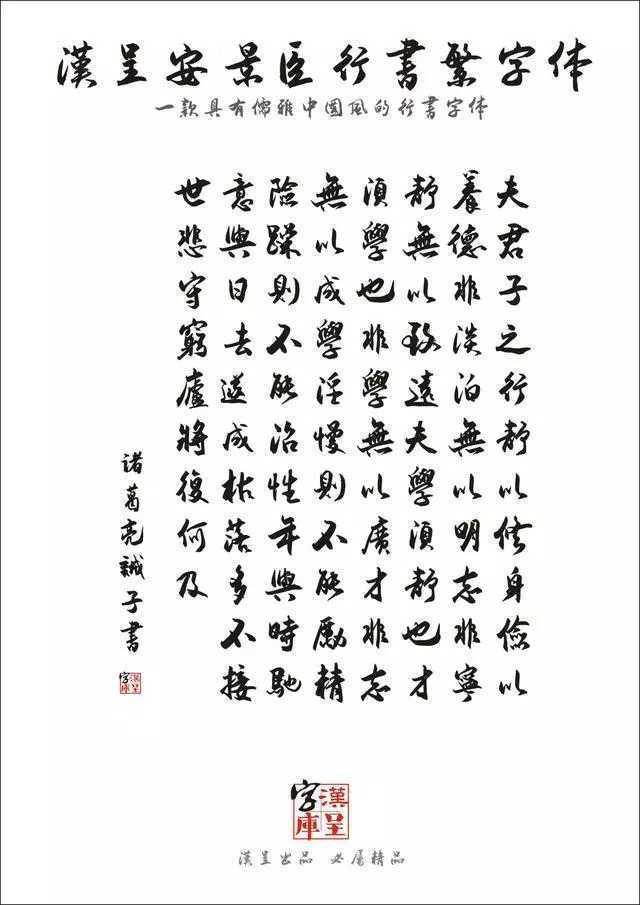 漢呈安景臣行書繁字体
一款具有儒雅中国風的行書字体
夫君子之行靜以修身儉以
養德非淡泊無以明志非寧
靜無以致遠夫學須靜也才
須學也非學無以廣才非志
無以成學淫慢則不能勵精
險躁則不能冶性年與時馳
意與日去遂成枯落多不接
世悲守窮廬將復何及
諸葛亮誡子書
漢呈字庫
漢呈字庫
漢呈出品 必屬精品